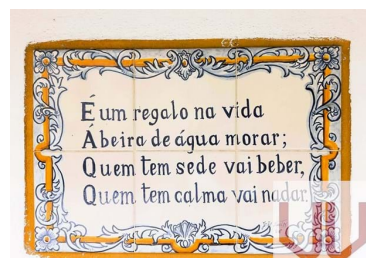 É um regalo na vida
Á beira de água morar;
Quem tem sede vai beber,
Quem tem calma vai nadar.